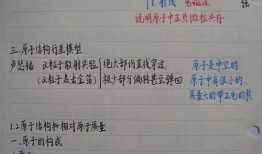 射线 电磁波
说明原子中正负微粒共存
三.原子结构行星模型
卢瑟福 α粒子散射实验 绝大部份直线穿过 原子是中空的
(α粒子轰击金箔) 极少部分偏转甚至弹回 原子中有很小的、
质量大的带正电的核
1.2.原子结构和相对原子质量
一.原子的构成